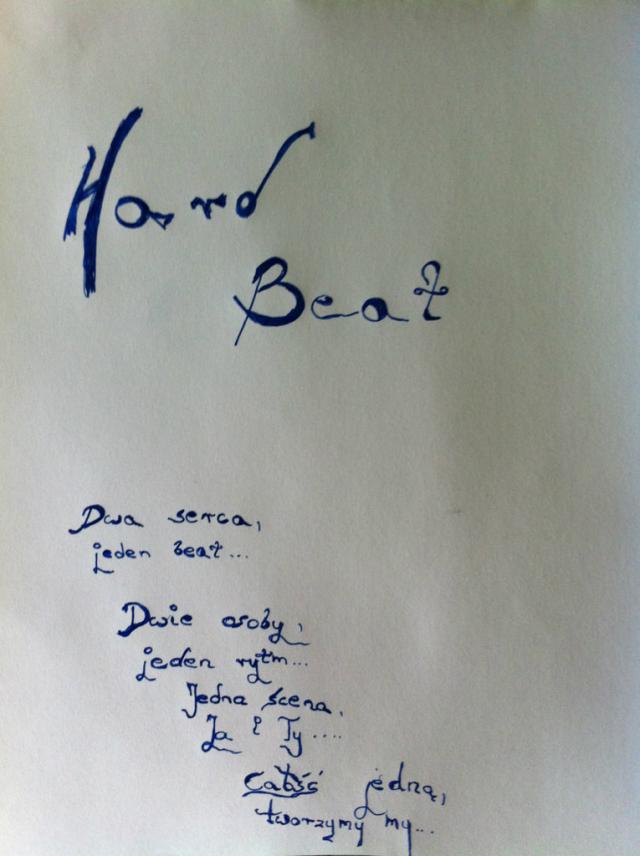 Hard
Beat
Dwa serca,
jeden beat...
Dwie osoby,
jeden rytm...
Jedna scena,
Ja & Ty....
Całość jedną,
tworzymy my...